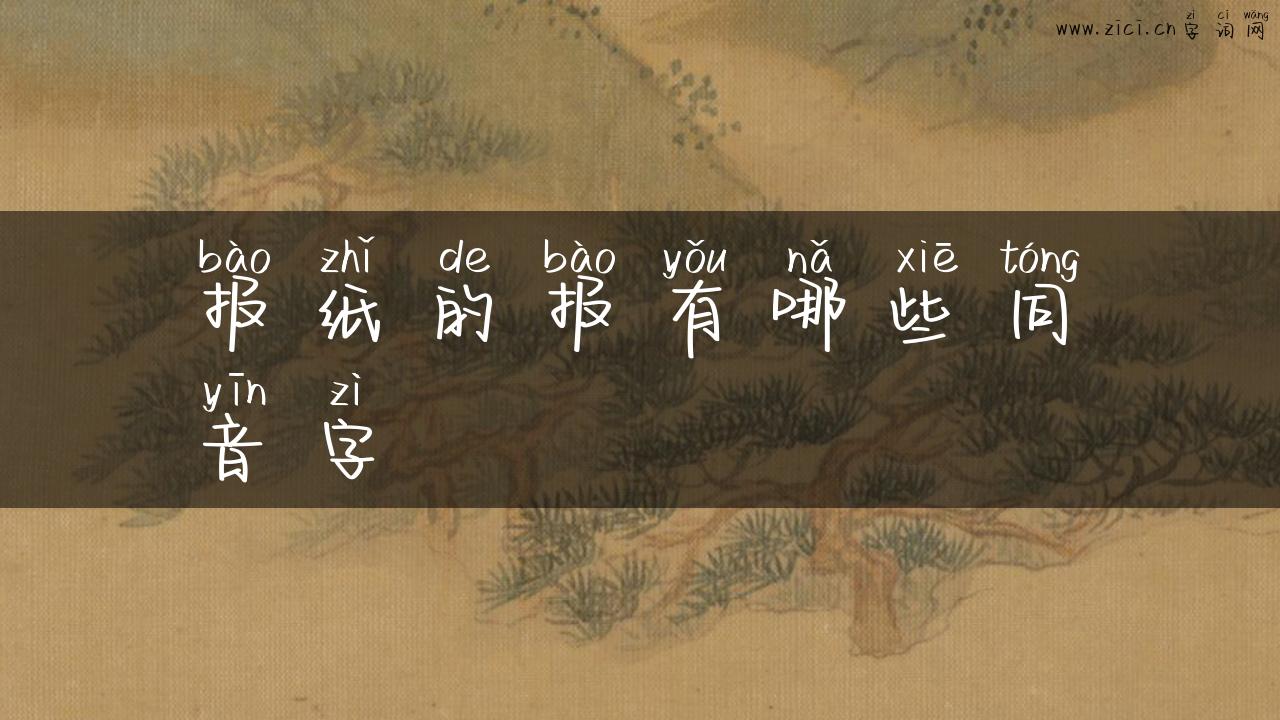 zì cí wǎng
www.zici.cn 字词网
bào zhǐ de bào yǒu nǎ xiē tóng
报纸的报有哪些同
yīn zì
音字